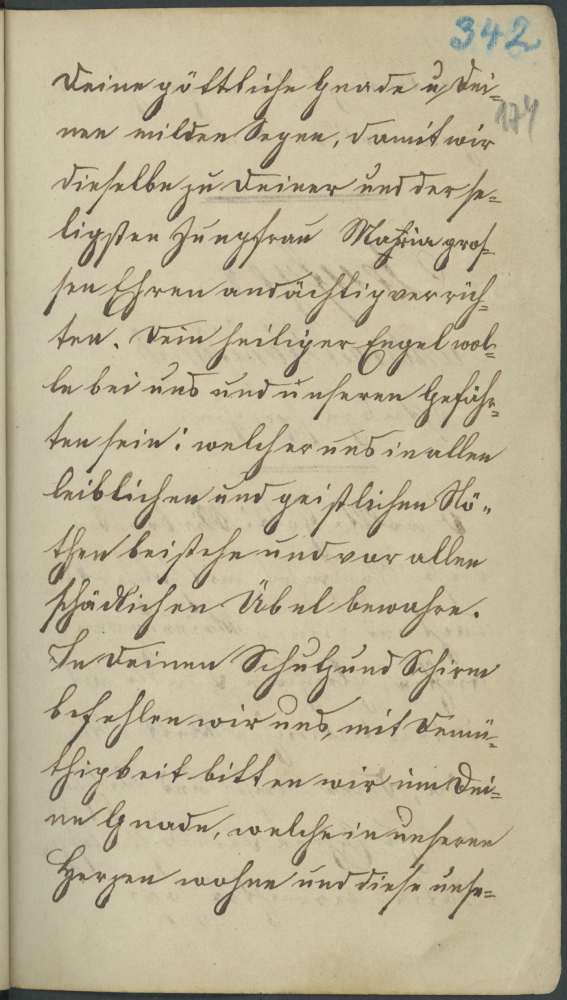 342
174
Deine göttliche Gnade u. Dei-
nen milden Segen, damit wir
dieselbe zu Deiner und der se-
ligsten Jungfrau Maria gros-
sen Ehren andächtig verrich-
ten. Dein heiliger Engel wol-
le bei uns und unseren Gefähr-
ten sein: welcher uns in allen
leiblichen und geistlichen Nö-
then beistehe und vor allen
schädlichen Übel bewahre.
In Deinen Schutz und Schirm
befehlen wir uns, mit Demü-
thigkeit bitten wir um Dei-
ne Gnade, welche in unseren
Herzen wohne und diese unse-